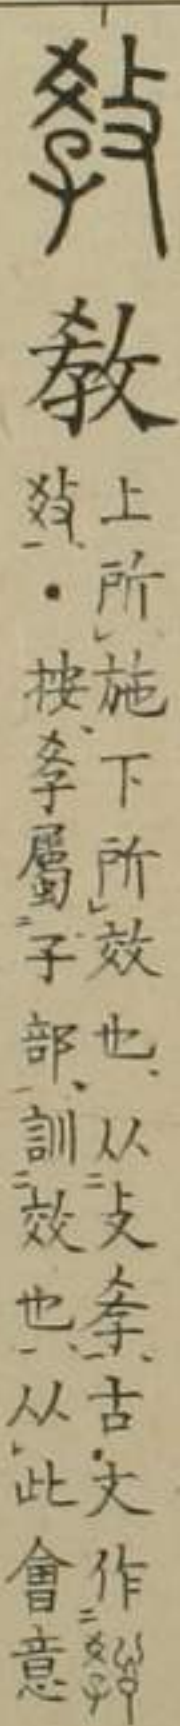 敎
敎
上所施下所效也从攴孝古文作
𢼂・按孝屬子部訓效也从此會意